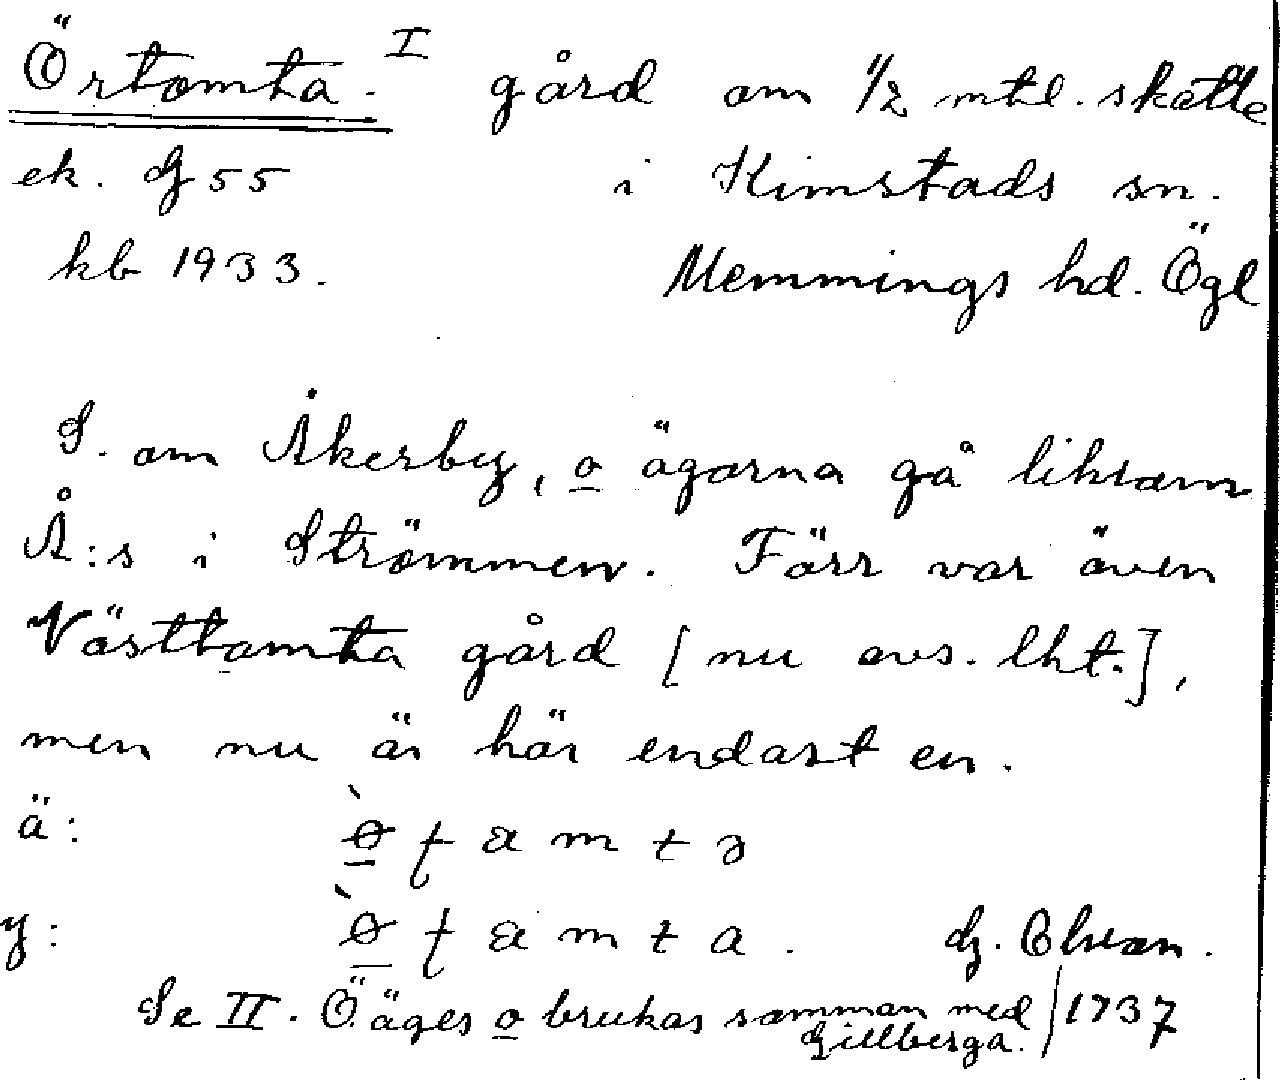 Örtomta. I gård om 1/2 mtl. skatte
ek. G 55 i Kimstads sn.
kb 1933. Memmings hd. Ögl
S. om Åkerby, o ägorna gå liksom
Å:s i Strömmen. Förr var även
Västtomta gård [nu avs. lht.],
men nu är här endast en.
ä:
y: G.
Se II. Ö. äges o brukas samman med Gillberga. / 1737